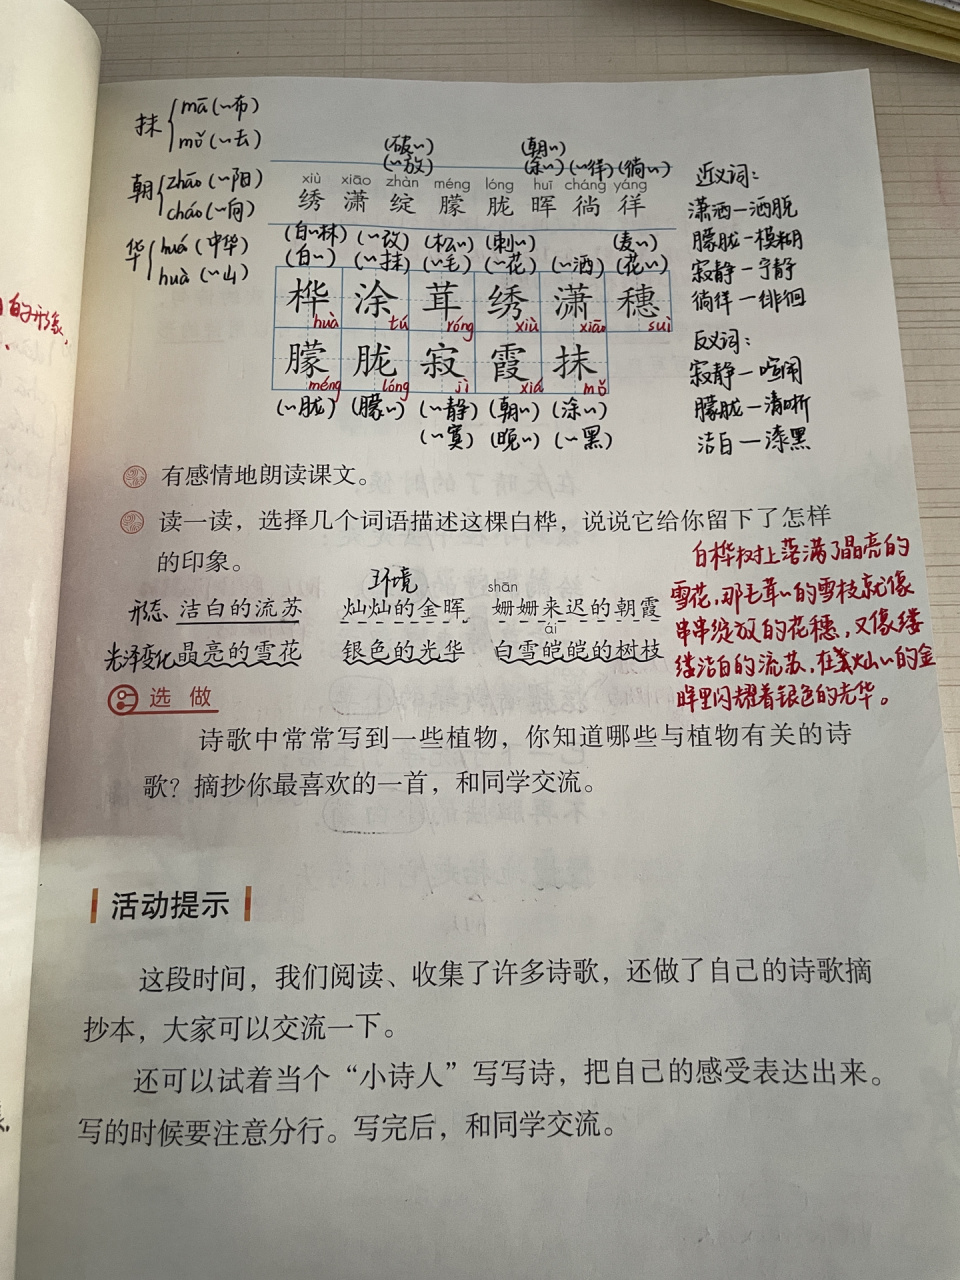 抹 mā(～布)
mǒ(～去)
朝 zhāo(～阳)
cháo(～向)
华 huá(中华)
huà(～山)
(破～) (朝～)
(～放) (余～) (～徉) (徜～)
xiù xiāo zhàn méng lóng huī cháng yáng
绣 潇 绽 朦 胧 晖 徜 徉
(白～林) (～改) (松～) (刺～) (麦～)
(白～) (～抹) (～毛) (～花) (～洒) (花～)
桦 涂 茸 绣 潇 穗
huà tú róng xiù xiāo suì
朦 胧 寂 霞 抹
méng lóng jì xiá mǒ
(～胧) (朦～) (～静) (朝～) (涂～)
(～寞) (晚～) (～黑)
近义词：
潇洒—洒脱
朦胧—模糊
寂静—宁静
徜徉—徘徊
反义词：
寂静—喧闹
朦胧—清晰
洁白—漆黑
的形象，
有感情地朗读课文。
读一读，选择几个词语描述这棵白桦，说说它给你留下了怎样
的印象。
环境 shān
形态 洁白的流苏 灿灿的金晖 姗姗来迟的朝霞
ái
光泽变化 晶亮的雪花 银色的光华 白雪皑皑的树枝
白桦树上落满了晶亮的
雪花，那毛茸～的雪枝就像
串串绽放的花穗，又像缕
缕洁白的流苏，在灿～的金
晖里闪耀着银色的光华。
选做
诗歌中常常写到一些植物，你知道哪些与植物有关的诗
歌？摘抄你最喜欢的一首，和同学交流。
活动提示
这段时间，我们阅读、收集了许多诗歌，还做了自己的诗歌摘
抄本，大家可以交流一下。
还可以试着当个“小诗人”写写诗，把自己的感受表达出来。
写的时候要注意分行。写完后，和同学交流。